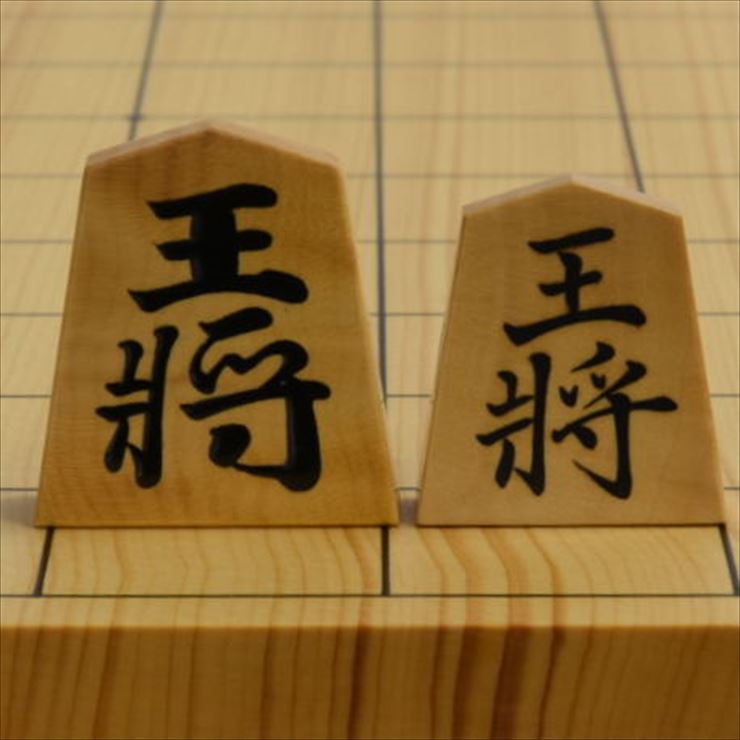 王將
王將